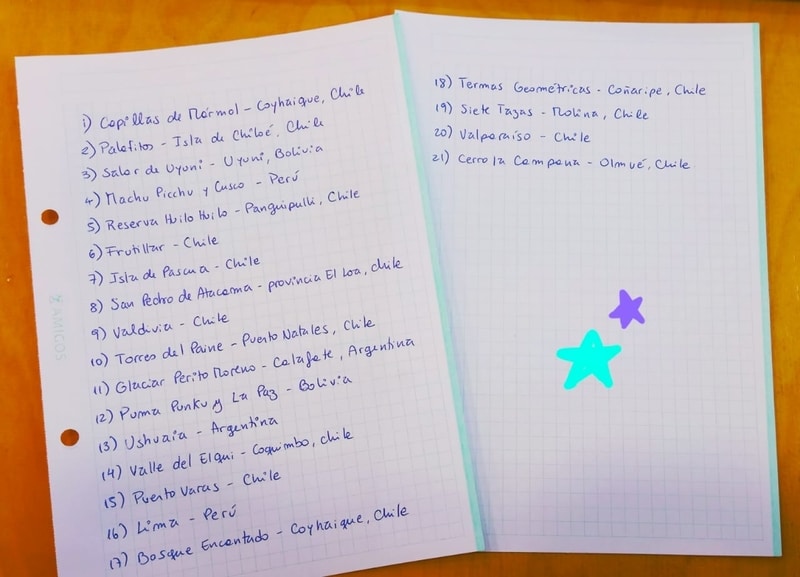 1) Capillas de Mármol - Coyhaique, Chile
2) Palafitos - Isla de Chiloé, Chile
3) Salar de Uyuni - Uyuni, Bolivia
4) Machu Picchu y Cusco - Perú
5) Reserva Huilo Huilo - Panguipulli, Chile
6) Frutillar - Chile
7) Isla de Pascua - Chile
8) San Pedro de Atacama - provincia El Loa, Chile
9) Valdivia - Chile
10) Torres del Paine - Puerto Natales, Chile
11) Glaciar Perito Moreno - Calafate, Argentina
12) Puma Punku y La Paz - Bolivia
13) Ushuaia - Argentina
14) Valle del Elqui - Coquimbo, Chile
15) Puerto Varas - Chile
16) Lima - Perú
17) Bosque Encantado - Coyhaique, Chile
AMIGOS
18) Termas Geométricas - Coñaripe, Chile
19) Siete Tazas - Molina, Chile
20) Valparaíso - Chile
21) Cerro la Campana - Olmué, Chile